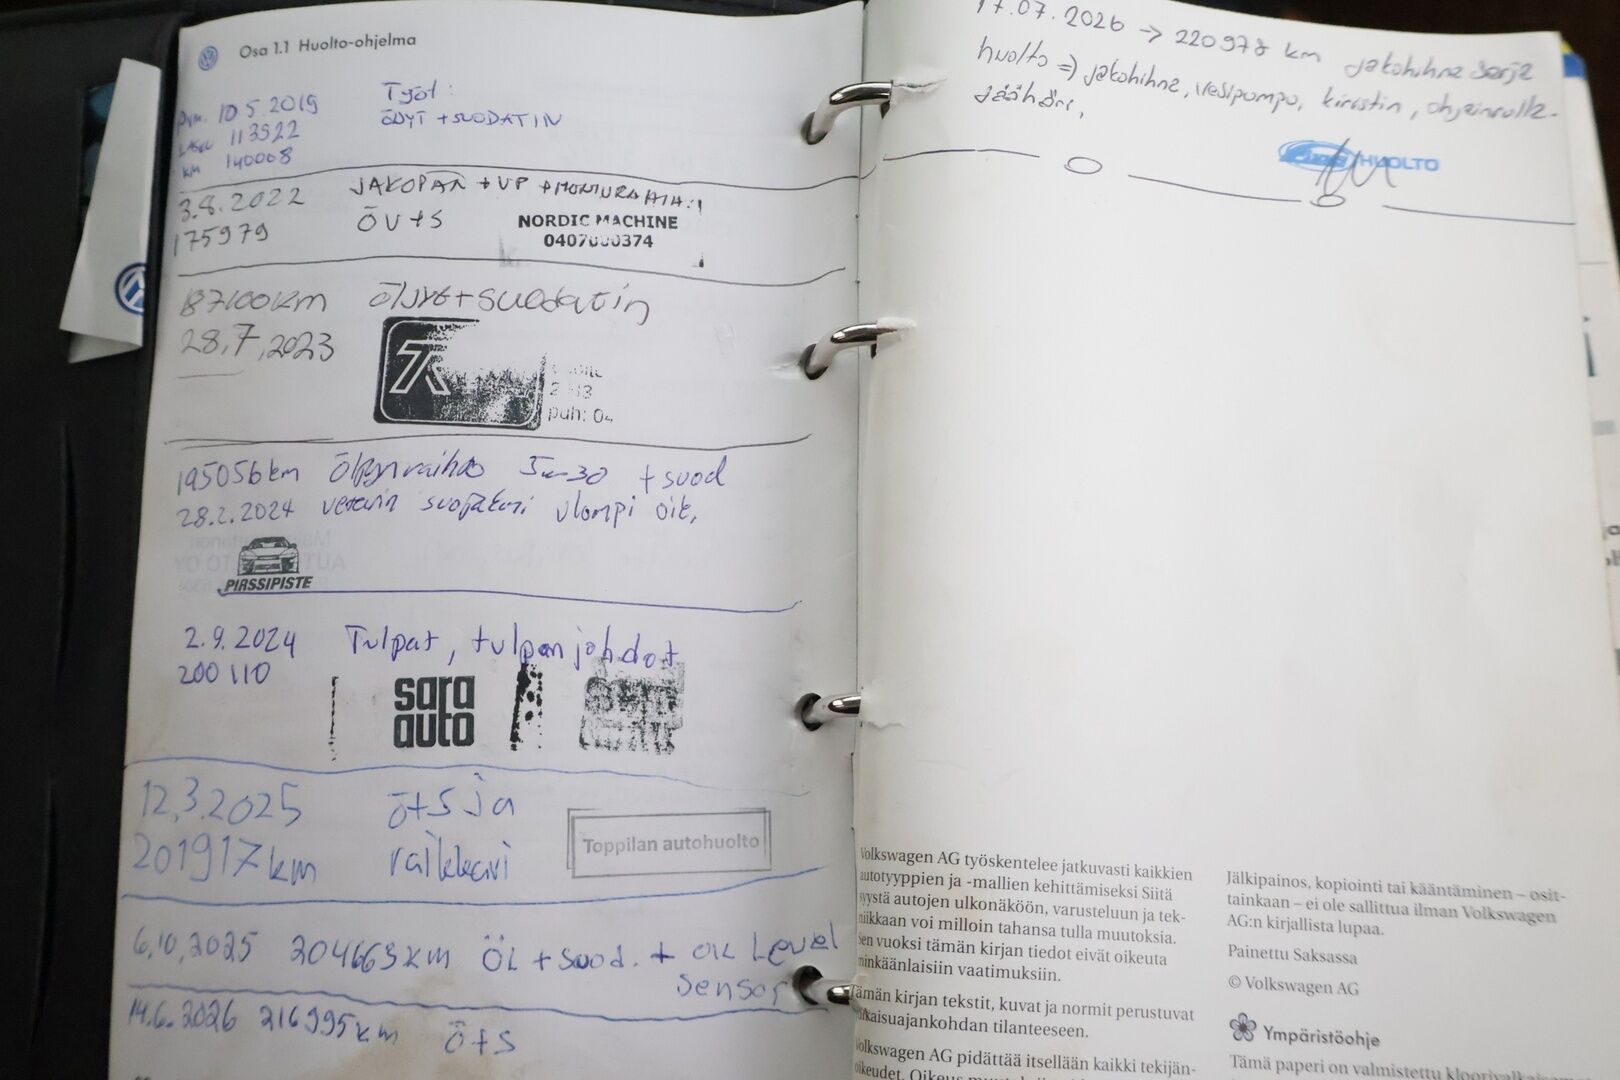 Osa 1.1 Huolto-ohjelma
Pvm. 10.5.2019
LASKU 113522
km 140008
Työt:
ÖLJYT + SUODATIN
3.8.2022
175979
JAKOPÄÄN + VP +
ÖV+S
NORDIC MACHINE
187100km öljyt+suodatin
28.7.2023
puh: 04
195056km öljynvaihto 5w-30 + suod
28.2.2024 vetävin suojakumi ulompi oik.
PIRSSIPISTE
2.9.2024 Tulpat, tulpanjohdot
200110
sara
auto
12.3.2025 ö+S ja
201917km raikkari
Toppilan autohuolto
6.10.2025 204663km ÖL + Suod. + OIL Level
Sensor
14.6.2026 216995km ö+S
17.07.2026 → 220978 km jakohihna sarja
huolto => jakohihna, vesipumpu, kiristin, ohjainrulla.
jäähdri,
HUOLTO
Volkswagen AG työskentelee jatkuvasti kaikkien
autotyyppien ja -mallien kehittämiseksi Siitä
syystä autojen ulkonäköön, varusteluun ja tek-
niikkaan voi milloin tahansa tulla muutoksia.
Sen vuoksi tämän kirjan tiedot eivät oikeuta
minkäänlaisiin vaatimuksiin.
Tämän kirjan tekstit, kuvat ja normit perustuvat
painoajankohdan tilanteeseen.
Volkswagen AG pidättää itsellään kaikki tekijän-
oikeudet.
Jälkipainos, kopiointi tai kääntäminen – osit-
tainkaan – ei ole sallittua ilman Volkswagen
AG:n kirjallista lupaa.
Painettu Saksassa
© Volkswagen AG
Ympäristöohje
Tämä paperi on valmistettu